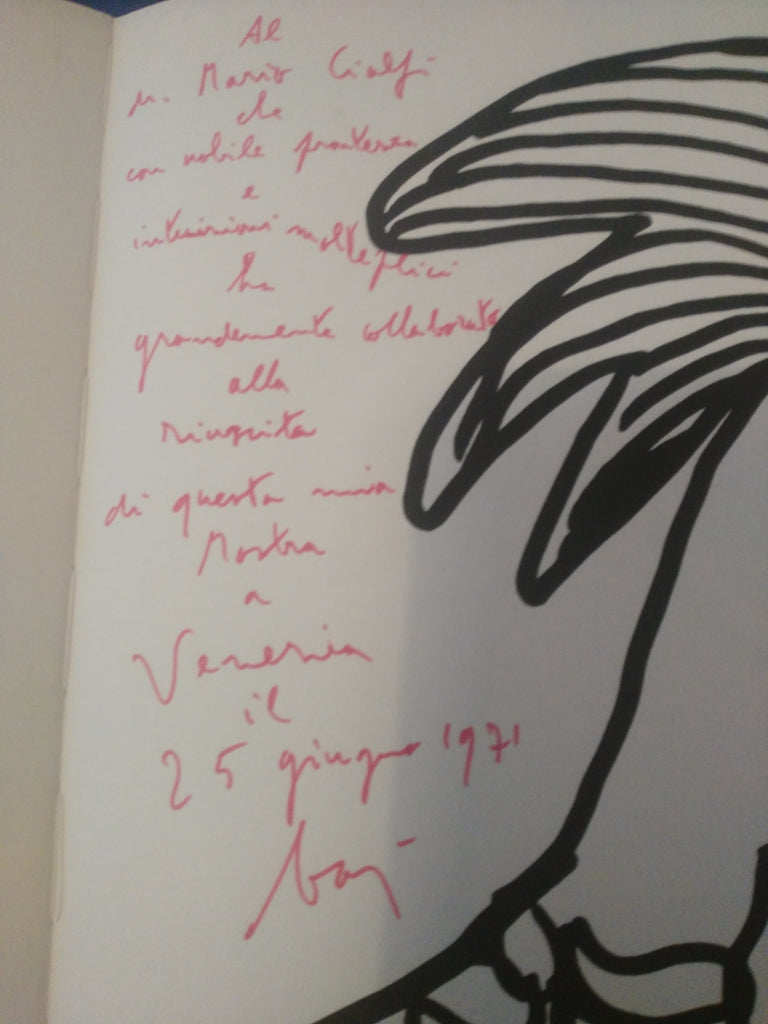 Al
M. Mario Cialfi
che
con nobile prontezza
e
intuizioni molteplici
ha
grandemente collaborato
alla
riuscita
di questa mia
Mostra
a
Venezia
il
25 giugno 1971
baj